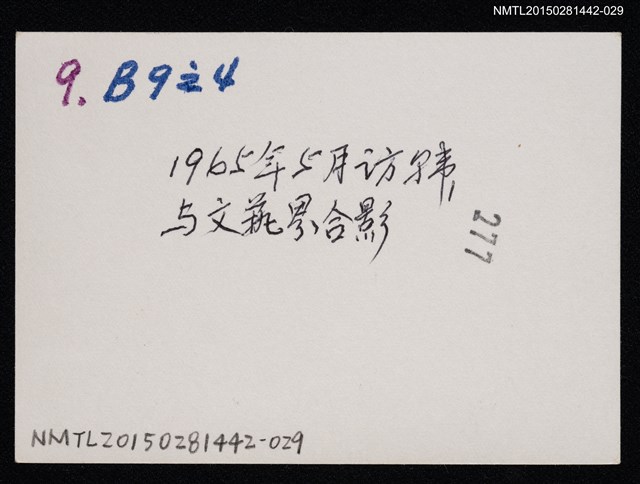 NMTL20150281442-029
9. B9之4
1965年5月访韩,
与文藝界合影
277
NMTL20150281442-029